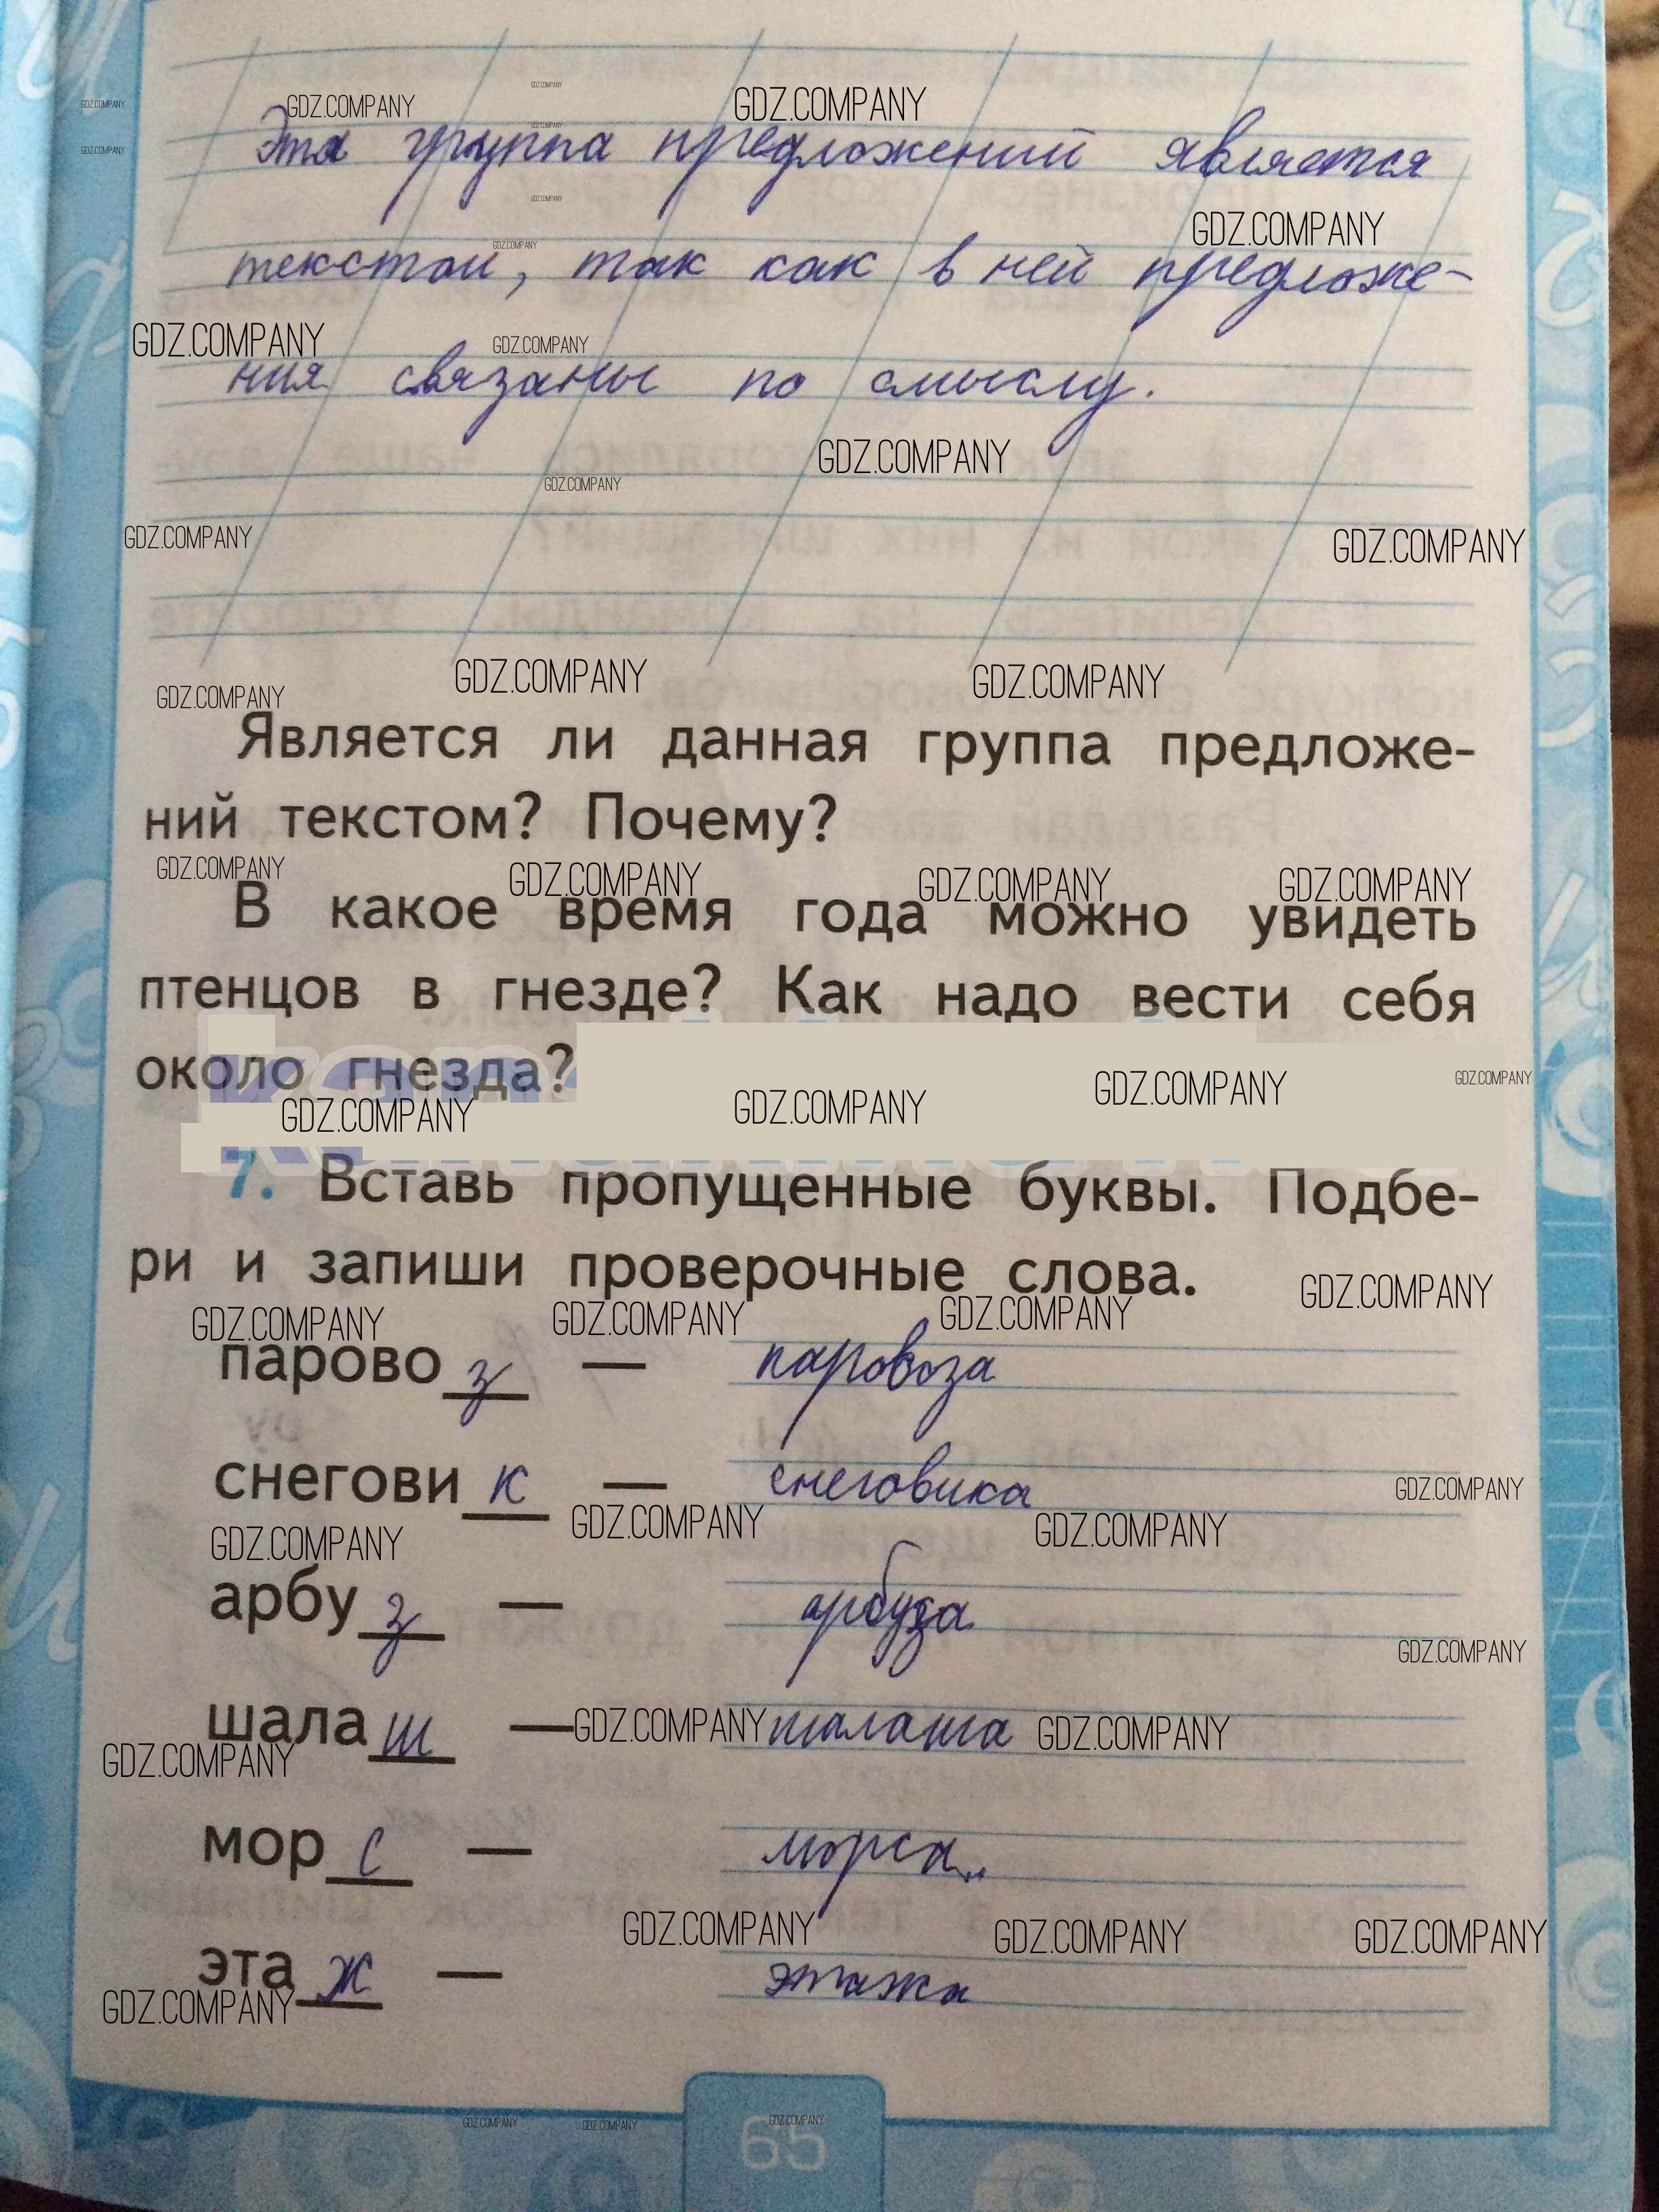 Эта группа предложений является
текстом, так как в ней предложе-
ния связаны по смыслу.
Является ли данная группа предложе-
ний текстом? Почему?
В какое время года можно увидеть
птенцов в гнезде? Как надо вести себя
около гнезда?
7. Вставь пропущенные буквы. Подбе-
ри и запиши проверочные слова.
паровоз — паровоза
снеговик — снеговика
арбуз — арбуза
шалаш — шалаша
морс — морса
этаж — этажа
65
GDZ.COMPANY